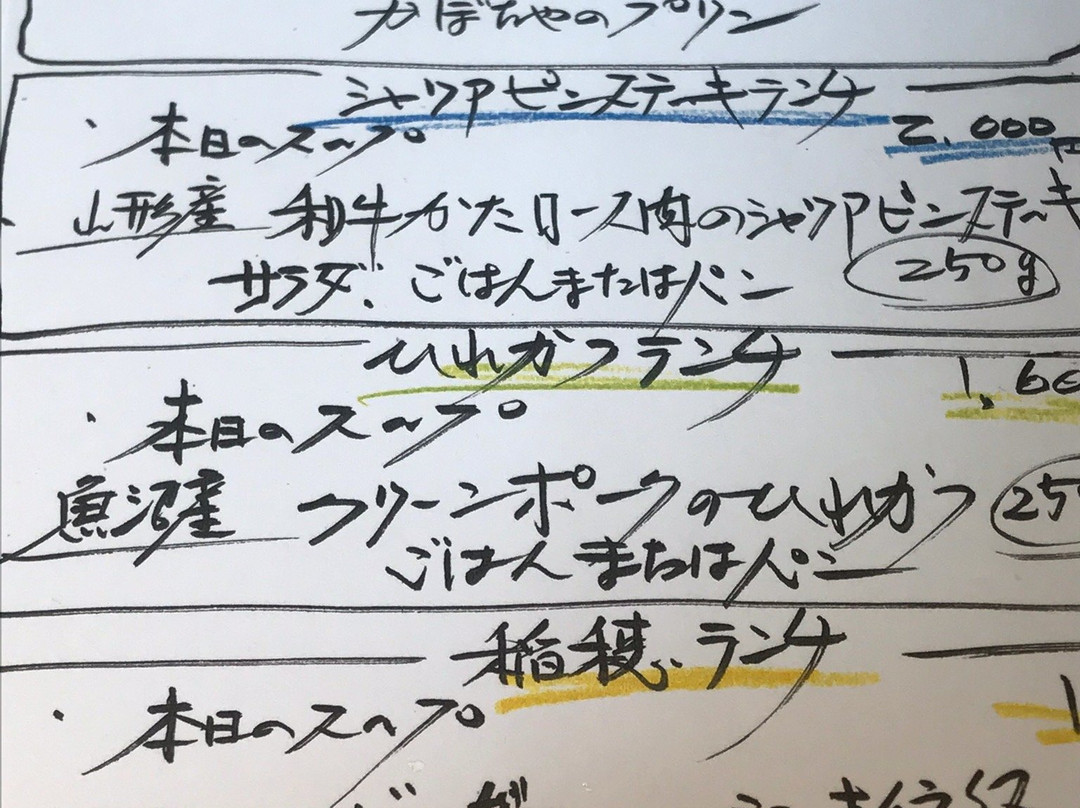 かぼちゃのプリン
シャリアピンステーキランチ
・本日のスープ 2.000円
山形産 和牛かたロース肉のシャリアピンステーキ
サラダ、ごはんまたはパン 250g
ひれかつランチ
1.60
・本日のスープ
魚沼産 クリーンポークのひれかつ 250
ごはんまたはパン
稲穂ランチ
・本日のスープ 1